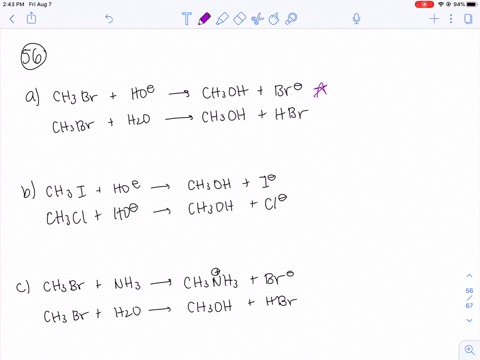 2:43 PM Fri Aug 7
94%
56
a) CH3Br + HO⊖ → CH3OH + Br⊖ ☆
CH3Br + H2O → CH3OH + HBr
b) CH3I + HO⊖ → CH3OH + I⊖
CH3Cl + HO⊖ → CH3OH + Cl⊖
c) CH3Br + NH3 → CH3N⊕H3 + Br⊖
CH3Br + H2O → CH3OH + HBr
56
/
67